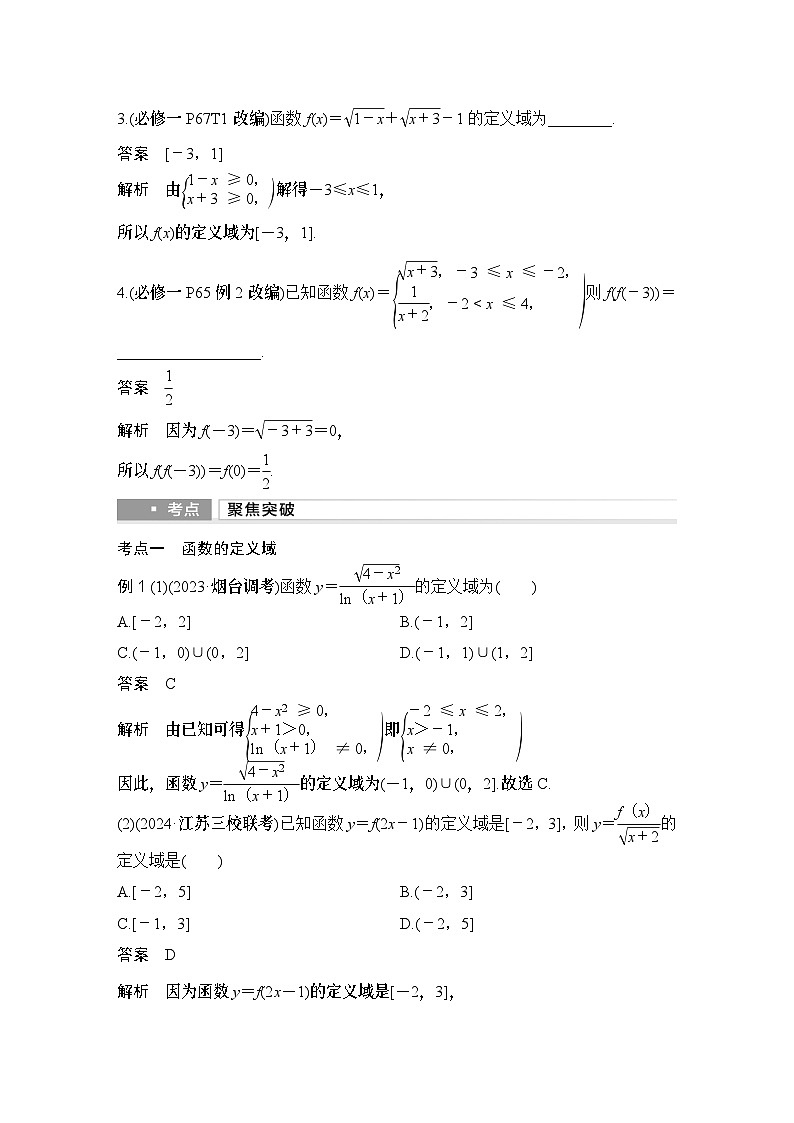 3.(必修一P67T1改编)函数f(x)=√(1-x)+√(x+3)-1的定义域为________.
答案 [-3,1]
解析 由{1-x ≥0, x+3 ≥0,)解得-3≤x≤1,
所以f(x)的定义域为[-3,1].
4.(必修一P65例2改编)已知函数f(x)={√(x+3),-3 ≤x ≤-2, 1/(x+2),-2<x ≤4,)则f(f(-3))=
__________________.
答案 1/2
解析 因为f(-3)=√(-3+3)=0,
所以f(f(-3))=f(0)=1/2.
考点 聚焦突破
考点一 函数的定义域
例1 (1)(2023·烟台调考)函数y=√(4-x²)/ln(x+1)的定义域为( )
A.[-2,2] B.(-1,2]
C.(-1,0)∪(0,2] D.(-1,1)∪(1,2]
答案 C
解析 由已知可得{4-x² ≥0, x+1>0, ln(x+1) ≠0,)即{-2 ≤x ≤2, x>-1, x ≠0,)
因此,函数y=√(4-x²)/ln(x+1)的定义域为(-1,0)∪(0,2].故选C.
(2)(2024·江苏三校联考)已知函数y=f(2x-1)的定义域是[-2,3],则y=f(x)/√(x+2)的
定义域是( )
A.[-2,5] B.(-2,3]
C.[-1,3] D.(-2,5]
答案 D
解析 因为函数y=f(2x-1)的定义域是[-2,3],